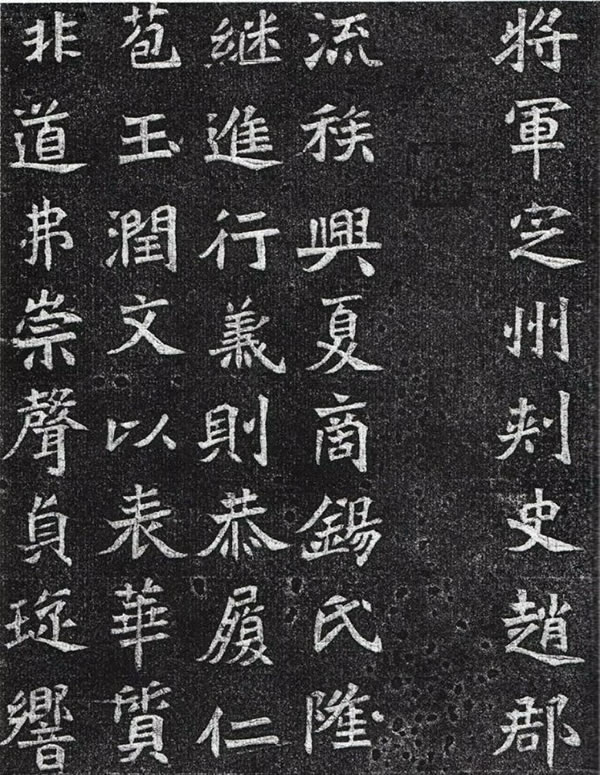 將軍定州刾史趙郡
流稊興夏商錫氏隆
継進行義則恭履仁
苞玉潤文以表華質
非道弗崇聲貞琁響